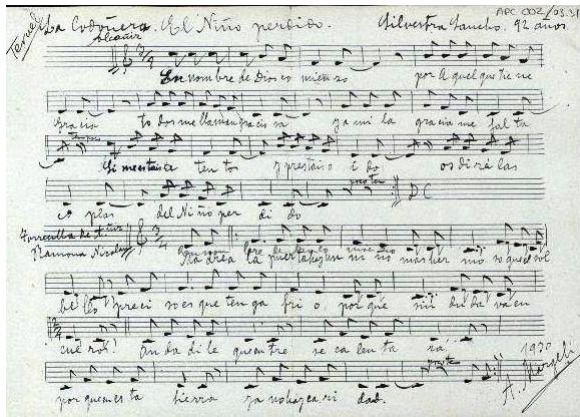 Teruel La Codoñera. El Niño perdido. Silvestra Sancho. 92 años
En nombre de Dios co mienzo por A quel que tie ne
gracia to dos me llaman gracio sa ya mi la gracia me fal ta
Si me estais a ten tos y prestais o i do os diré las
co plas del Ni ño per di do
D C
Ramona Nicolau
Madre a la puerta hay un ni ño mas her mo so que el sol
be llo preci so es que ten ga fri o por que sin du da va en
cue ros! An da di le que entre se ca len ta rá
1930
por que en es ta tierra ya no hay ca ri dad.
A. Margelí